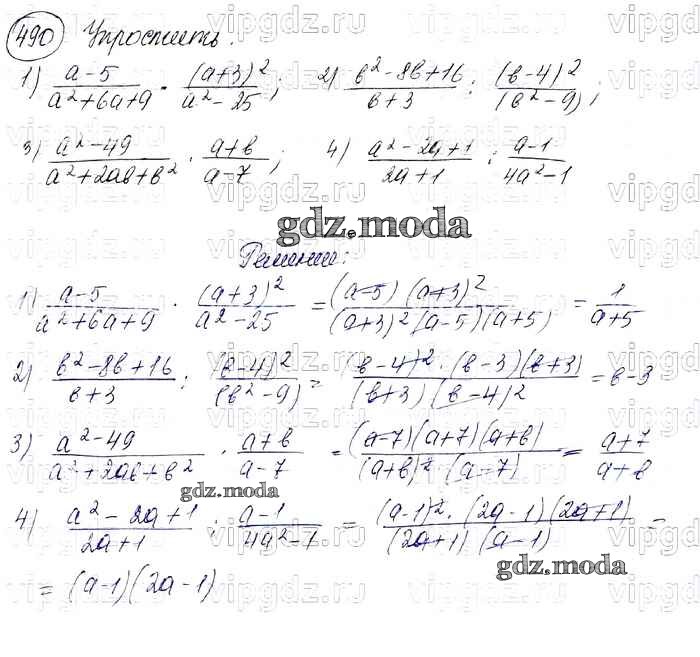 490 Упростить.
1) (a-5)/(a²+6a+9) · (a+3)²/(a²-25); 2) (в²-8в+16)/(в+3) : (в-4)²/(в²-9);
3) (a²-49)/(a²+2aв+в²) · (a+в)/(a-7); 4) (a²-2a+1)/(2a+1) : (a-1)/(4a²-1)
gdz.moda
Решение:
1) (a-5)/(a²+6a+9) · (a+3)²/(a²-25) = (a-5)(a+3)²/((a+3)²(a-5)(a+5)) = 1/(a+5)
2) (в²-8в+16)/(в+3) : (в-4)²/(в²-9) = (в-4)²·(в-3)(в+3)/((в+3)(в-4)²) = в-3
3) (a²-49)/(a²+2aв+в²) · (a+в)/(a-7) = (a-7)(a+7)(a+в)/((a+в)²(a-7)) = (a+7)/(a+в)
gdz.moda
4) (a²-2a+1)/(2a+1) : (a-1)/(4a²-1) = (a-1)²·(2a-1)(2a+1)/((2a+1)(a-1)) =
gdz.moda
= (a-1)(2a-1)
vipgdz.ru